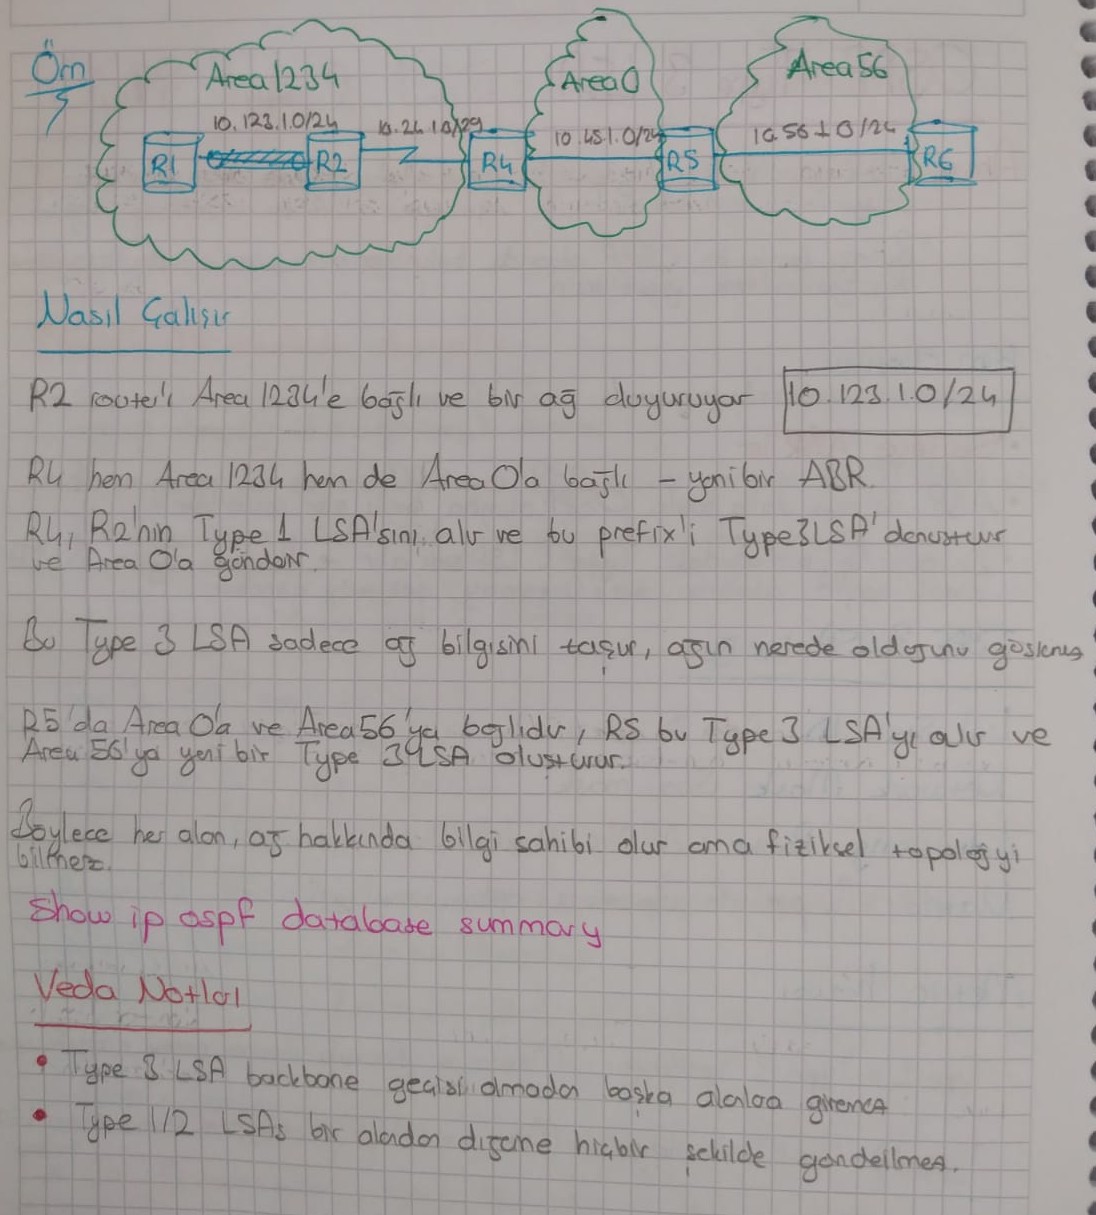 Örn
Area 1234
Area 0
Area 56
10.123.1.0/24
10.24.1.0/29
10.45.1.0/24
10.56.1.0/24
R1
R2
R4
R5
R6
Nasıl Çalışır
R2 router'ı Area 1234'e bağlı ve bir ağ duyuruyor 10.123.1.0/24
R4 hem Area 1234 hem de Area 0'a bağlı - yani bir ABR
R4, R2'nin Type 1 LSA'sını alır ve bu prefix'i Type3LSA' dönüştürür
ve Area 0'a gönderir.
Bu Type 3 LSA sadece ağ bilgisini taşır, ağın nerede olduğunu göstermez
R5'da Area 0'a ve Area56'ya bağlıdır, R5 bu Type 3 LSA'yı alır ve
Area 56'ya yeni bir Type 3 LSA oluşturur.
Böylece her alan, ağ hakkında bilgi sahibi olur ama fiziksel topolojiyi
bilmez.
Show ip ospf database summary
Veda Notları
• Type 3 LSA backbone geçişi olmadan başka alanlara giremez
• Type 1/2 LSAs bir alandan dışarıne hiçbir şekilde gönderilmez.